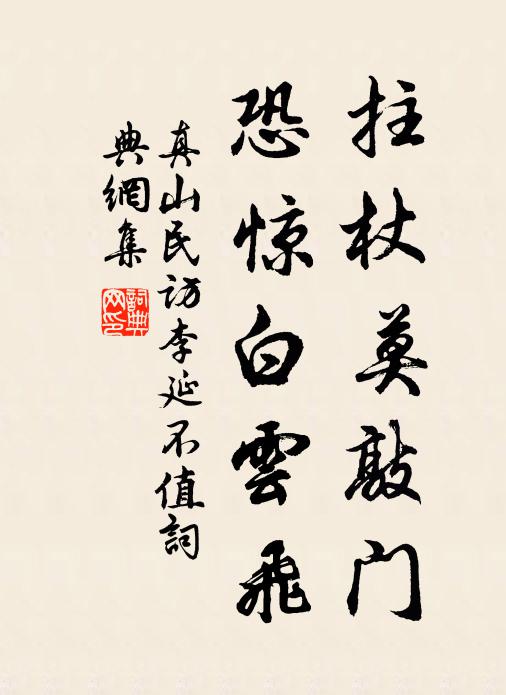 拄杖莫敲门
恐惊白雲飛
真山民访李延不值詞
典網集
詞典
网印